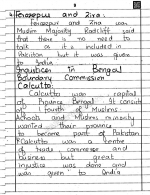 Ferozepur and Zira:
Ferozepur and Zira was
Muslim Majority Radcliff said
that there is no need to
talk as it is included in
Pakistan but it was given
to India
Injustices in Bengal
Boundary Commission
Calcutta:
Calcutta was capital
of Province Bengal. It consist
of 1 fourth of Muslims
Schools and Muslims minority
wanted their province
to become part of Pakistan
Calcutta was a centre
of trade commerce and
business but great
injustice was done and
was given to India